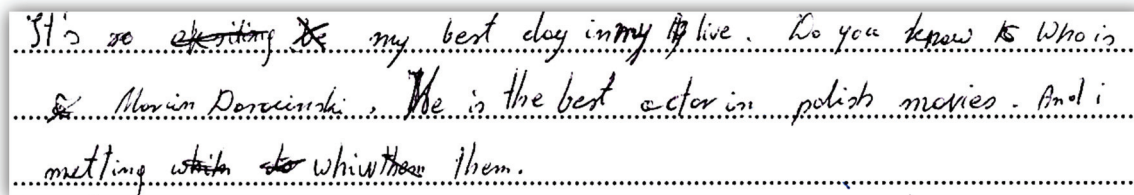 It's so my best day in my live. Do you know who is
Marcin Dorocinski, He is the best actor in polish movies. And i
metting them.